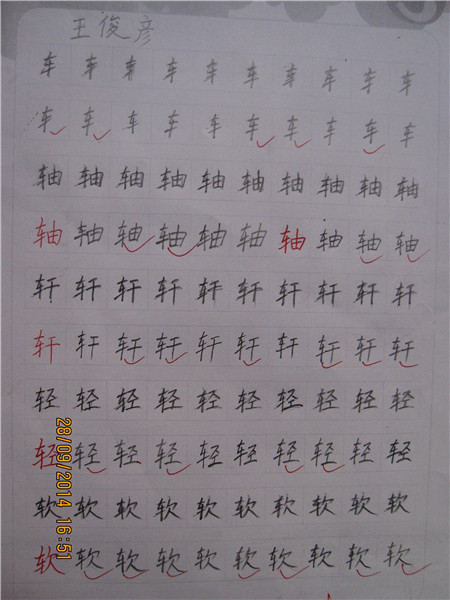 王俊彦
车车车车车车车车车车
车车车车车车车车车车
轴轴轴轴轴轴轴轴轴轴
轴轴轴轴轴轴轴轴轴轴
轩轩轩轩轩轩轩轩轩轩
轩轩轩轩轩轩轩轩轩轩
轻轻轻轻轻轻轻轻轻轻
轻轻轻轻轻轻轻轻轻轻
软软软软软软软软软软
软软软软软软软软软软
28/09/2014 16:51